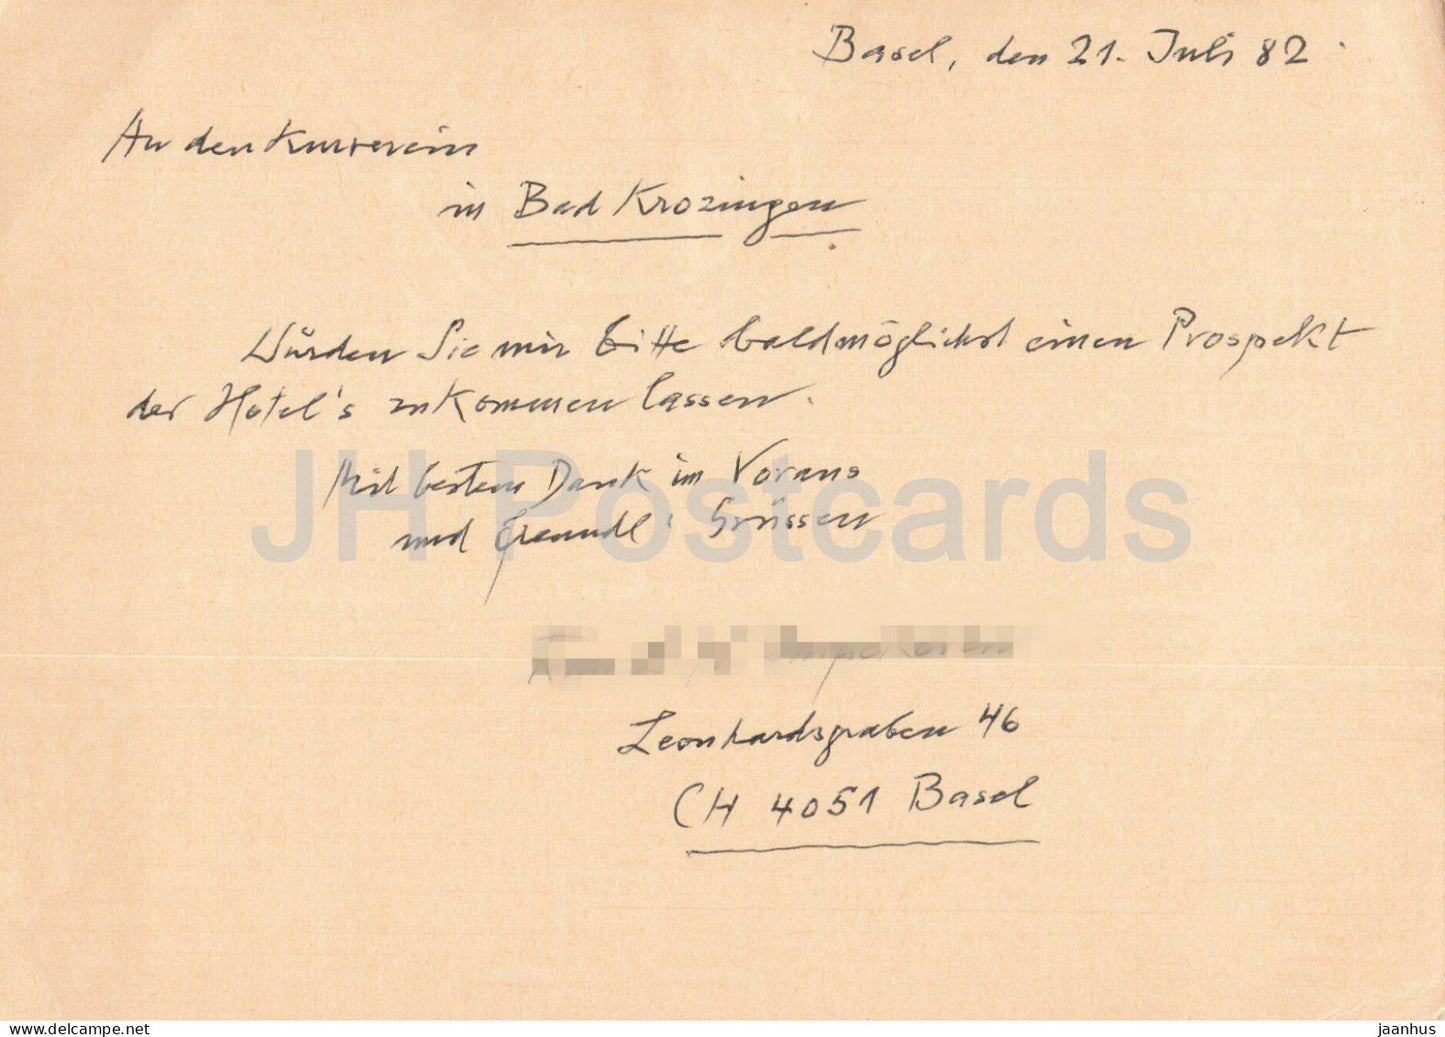 Basel, den 21. Juli 82
An den Kurverein
in Bad Krozingen
Würden Sie mir bitte baldmöglichst einen Prospekt
der Hotel's zukommen lassen.
Mit bestem Dank im Voraus
und freundl. Grüssen
JH Postcards
Leonhardsgraben 46
CH 4051 Basel
www.delcampe.net
jaanhus